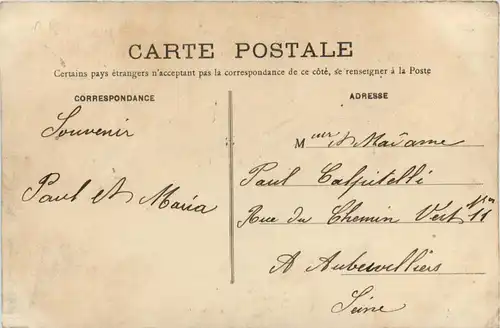 CARTE POSTALE
Certains pays étrangers n'acceptant pas la correspondance de ce côté, se renseigner à la Poste
CORRESPONDANCE
ADRESSE
Souvenir
Paul et Maria
Meur et Madame
Paul
Rue du Chemin Vert No 11
A Aubervilliers
Seine